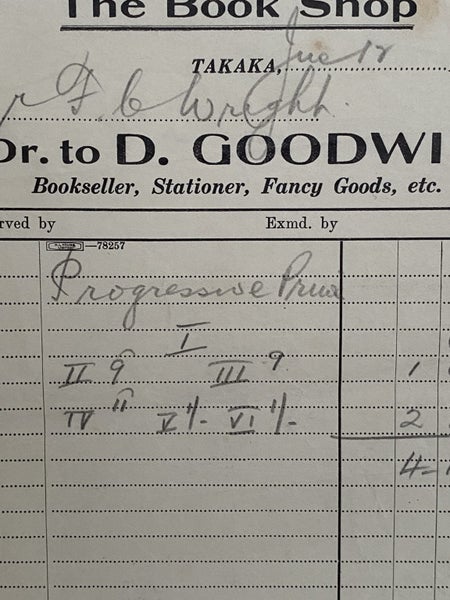 The Book Shop
TAKAKA, June 12
r F. C. Wright.
Dr. to D. GOODWI
Bookseller, Stationer, Fancy Goods, etc.
rved by Exmd. by
—78257
Progressive
I
II 9 III 9 1
IV 11 V 1/- VI 1/- 2
4